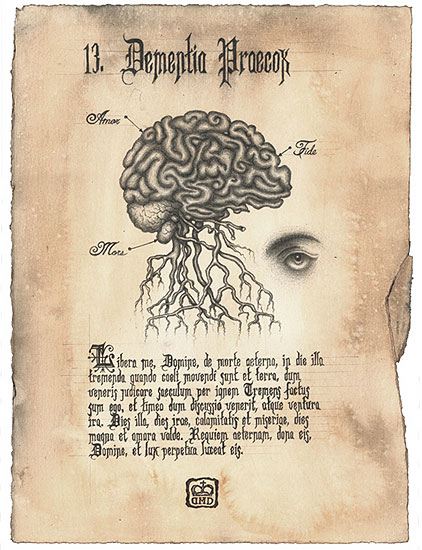 13. Dementia Praecox
Amor
Fide
Libera me, Domine, de morte aeterna, in die illa
tremenda quando coeli movendi sunt et terra, dum
veneris judicare saeculum per ignem Tremens factus
sum ego, et timeo dum discussio venerit, atque ventura
ira. Dies illa, dies irae, calamitatis et miseriae, dies
magna et amara valde. Requiem aeternam, dona eis,
Domine, et lux perpetua luceat eis.